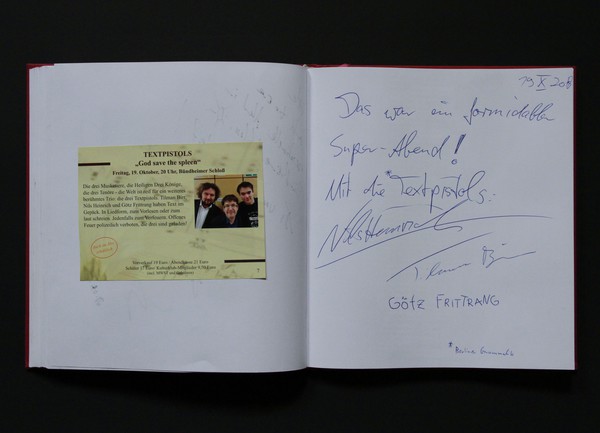 TEXTPISTOLS
„God save the spleen“
Freitag, 19. Oktober, 20 Uhr, Bündheimer Schloß
Die drei Musketiere, die Heiligen Drei Könige,
die drei Tenöre - die Welt ist reif für ein weiteres
berühmtes Trio: die drei Textpistols. Tilman Birr,
Nils Heinrich und Götz Frittrang haben Text im
Gepäck. In Liedform, zum Vorlesen oder zum
laut schreien. Jedenfalls zum Vorlesen. Offenes
Feuer polizeilich verboten, die drei sind geladen!
7
19 X 20
Das war ein formidabler
Super-Abend!
Mit die* Textpistols:
Nils Heinrich
Götz FRITTRANG